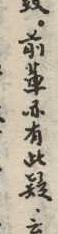 致。前輩亦有此疑。云